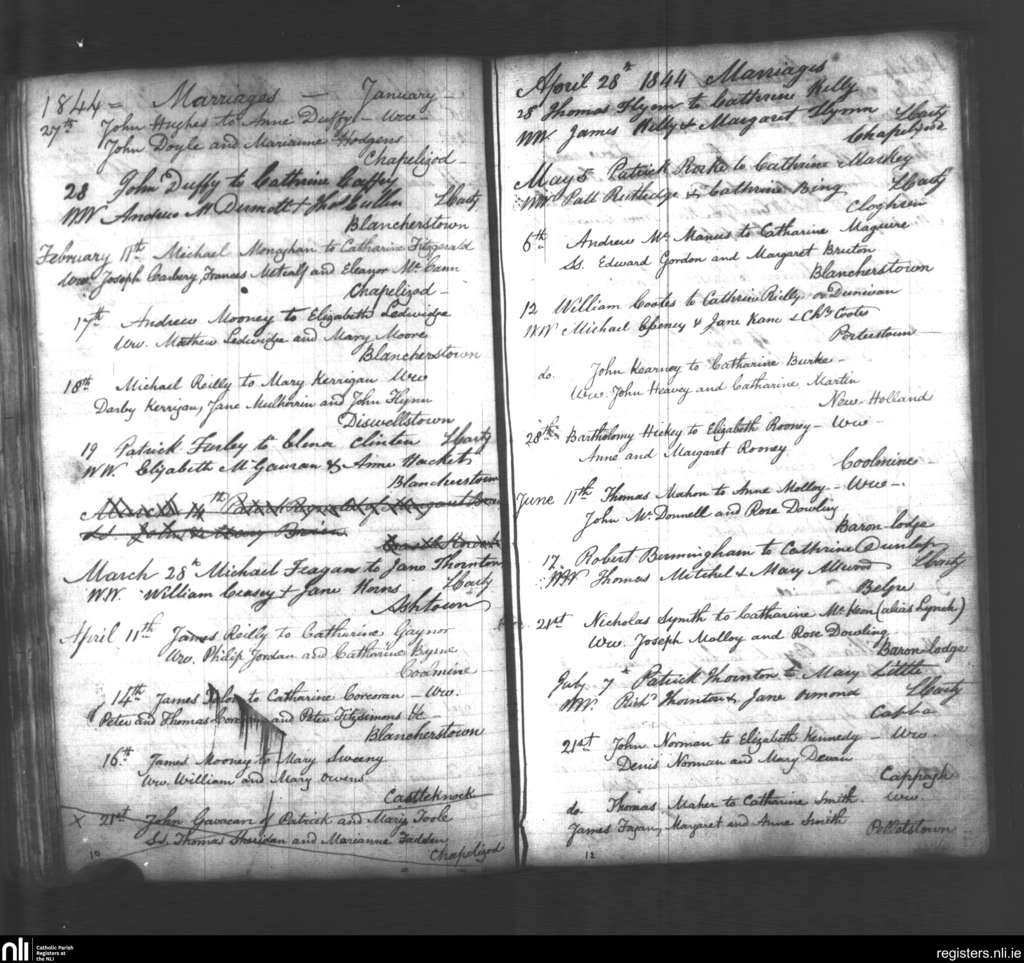 1844 = Marriages — January —
27th John Hughes to Anne Duffy — Ww —
John Doyle and Marianne Hodgens
Chapelizod —
28 John Duffy to Cathrine Caffry
WW Andrew McDermott & Thos Cullen
Blancherstown
February 11th Michael Monaghan to Catharine Fitzgerald
Ww. Joseph Carbery, Frances Metcalf and Eleanor McCann
Chapelizod —
17th Andrew Mooney to Elizabeth Ledwidge
Ww. Mathew Ledwidge and Mary Moore
Blancherstown
18th Michael Reilly to Mary Kerrigan Ww
Darby Kerrigan, Jane Mulhorrin and John Flynn
Diswellstown
19 Patrick Farley to Elena Clinton
WW Elizabeth McGauran & Anne Hackett
Blancherstown
14th
John & Mary
March 28th Michael Feagan to Jane Thornton
WW. William Ceasey & Jane Horns
Ashtown
April 11th James Reilly to Catharine Gaynor
Ww. Philip Jordan and Catharine Byrne
Coolmine
14th James to Catharine Corcoran — Ww.
Peter and Thomas and Peter Fitzsimons &c —
Blancherstown
16th James Mooney to Mary Sweeny
Ww. William and Mary Owens
Castleknock
X 21st John Gavacan of Patrick and Mary Toole
Ss. Thomas Sheridan and Marianne Fadden
Chapelizod
10
April 28th 1844 Marriages
28 Thomas Flynn to Cathrine Kelly
WW. James Kelly & Margaret Flynn
Chapelizod
May 5 Patrick Rorke to Cathrine Maskey
WW Patt Rutledge & Cathrine Bing
Cloghran
6th Andrew McManus to Catharine Maguire
Ss. Edward Gordon and Margaret Bruton
Blancherstown
12 William Cootes to Cathrine Reilly or Dunivan
WW Michael & Jane Kane & Chs Cootes
Porterstown
do. John Kearney to Catharine Burke —
Ww. John Heavey and Catharine Martin
New-Holland
28th Bartholomy Hickey to Elizabeth Rooney — Ww —
Anne and Margaret Rooney
Coolmine
June 11th Thomas Mahon to Anne Molloy — Ww —.
John McDonnell and Rose Dowling
Baron-lodge
17. Robert Bermingham to Cathrine Dunlap
WW Thomas Mitchel & Mary
21st Nicholas Symth to Catharine McKeon (alias Lynch)
Ww. Joseph Molloy and Rose Dowling
Baron-lodge
July 7th Patrick Thornton to Mary Little
WW. Richd Thornton & Jane Ormond
Cappa
21st John Norman to Elizabeth Kennedy — Ww
Denis Norman and Mary Devan
Cappagh
do. Thomas Maher to Catharine Smith. Ww.
James Fagan, Margaret and Anne Smith
Pelletstown
12
nli Catholic Parish
Registers at
the NLI
registers.nli.ie